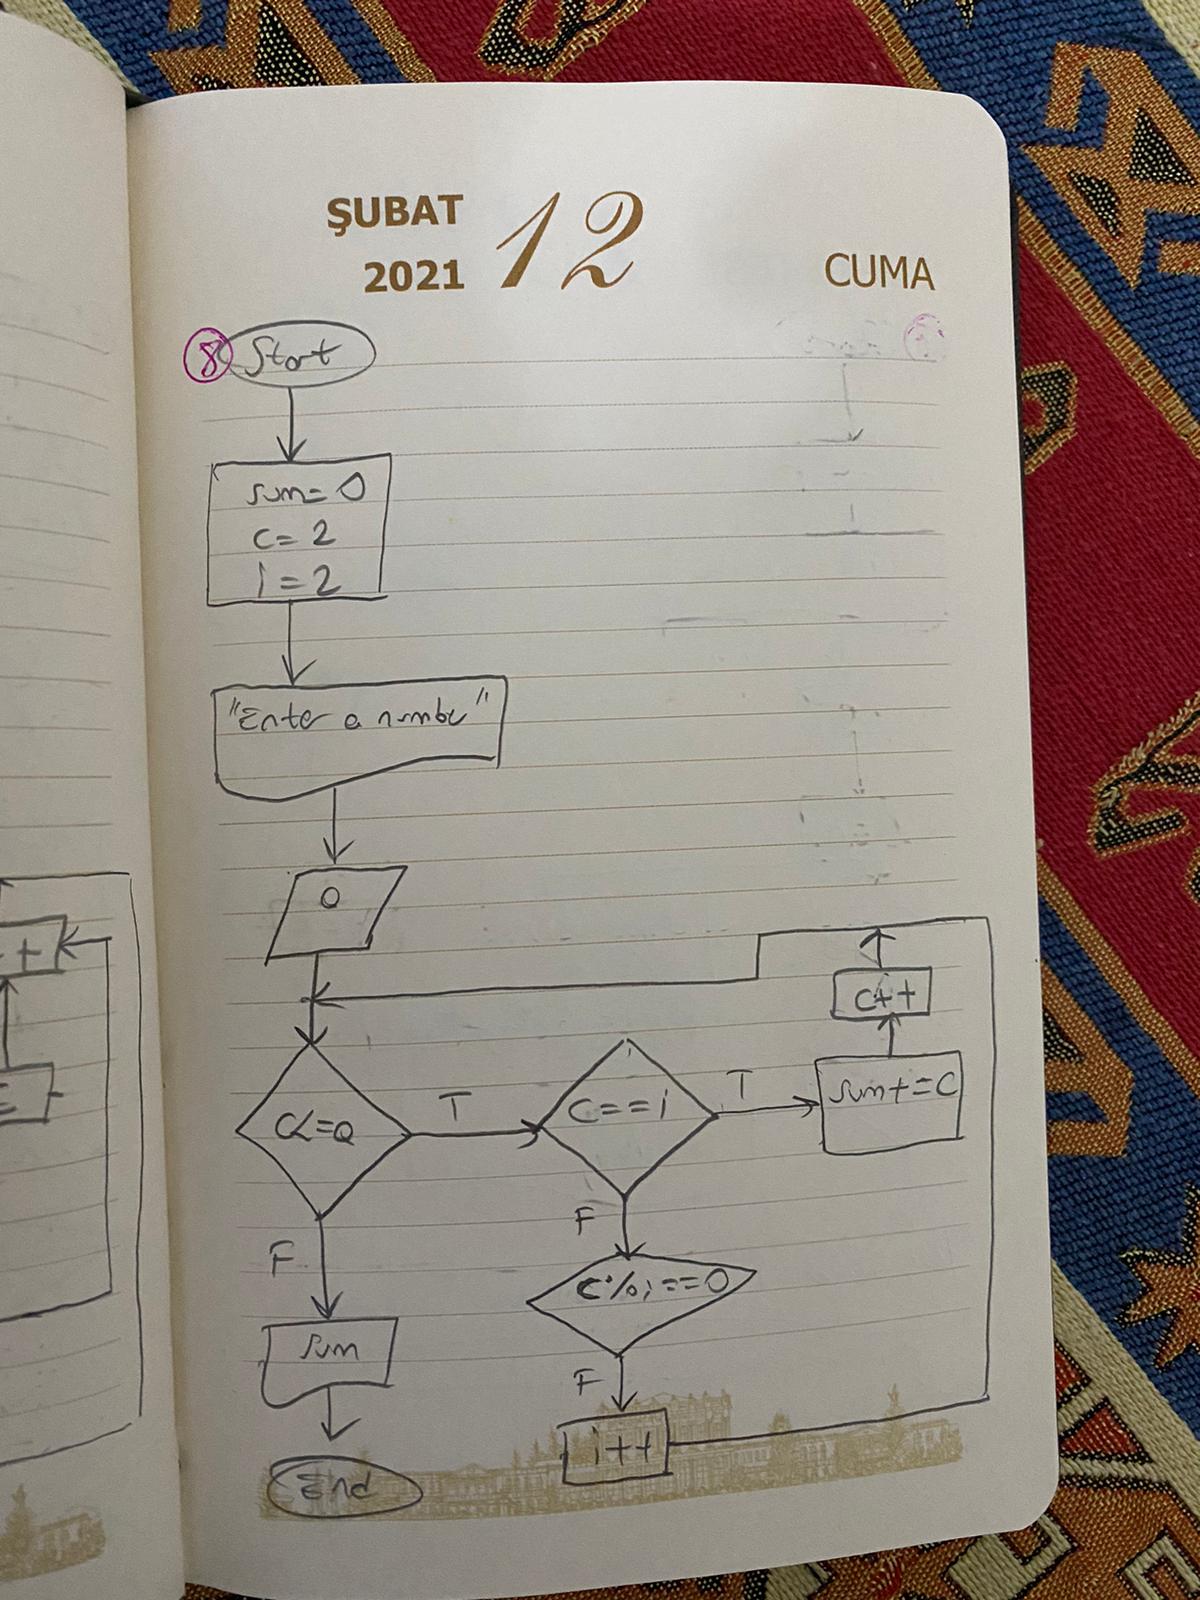 ŞUBAT 12
2021
CUMA
8 Start
sum=0
c=2
i=2
"Enter a numbe"
a
C<=a
T
C==i
T
sum+=C
c++
F
F
C%i==0
sum
F
i++
End
++
=